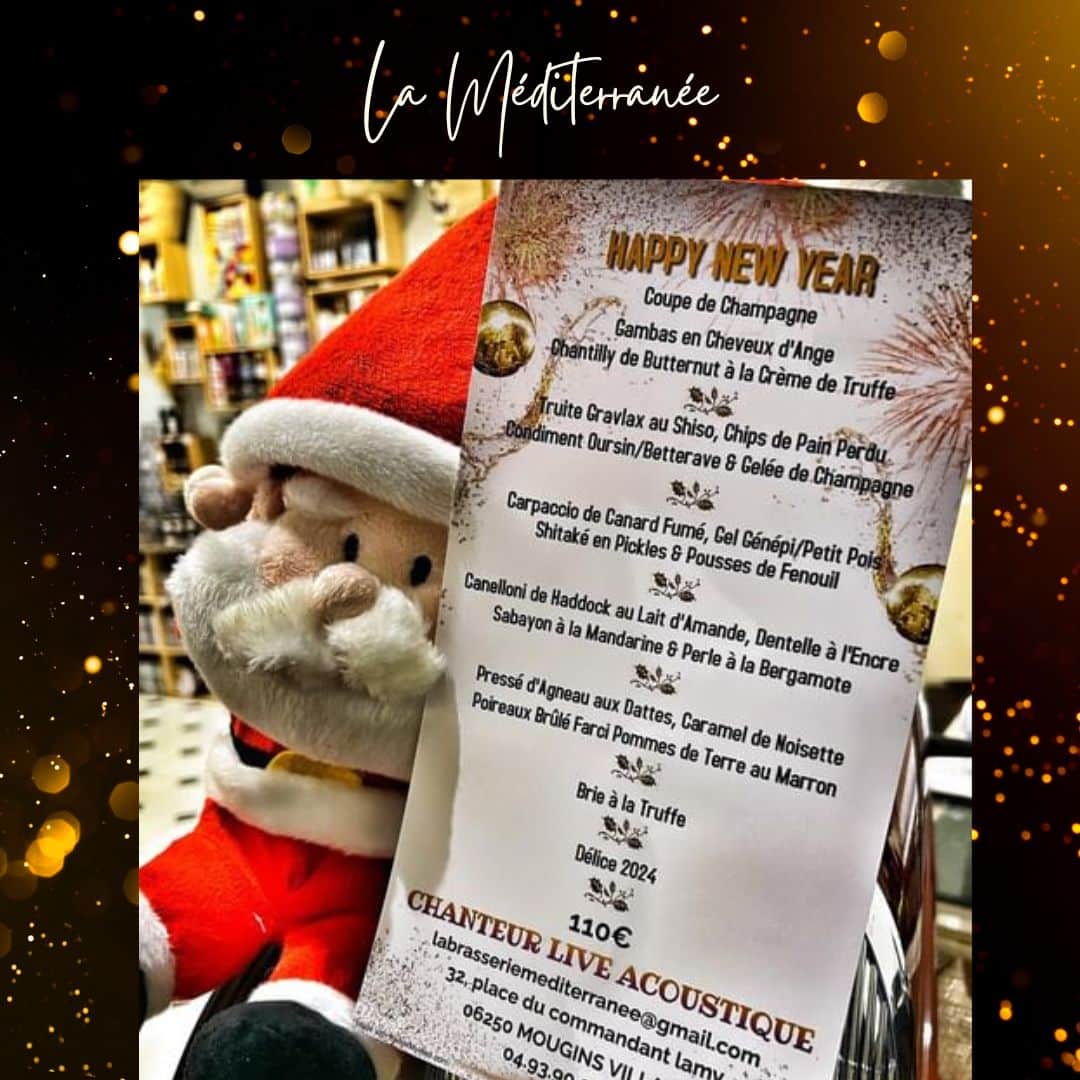 La Méditerranée
HAPPY NEW YEAR
Coupe de Champagne
Gambas en Cheveux d'Ange
Chantilly de Butternut à la Crème de Truffe
Truite Gravlax au Shiso, Chips de Pain Perdu
Condiment Oursin/Betterave & Gelée de Champagne
Carpaccio de Canard Fumé, Gel Génépi/Petit Pois
Shitaké en Pickles & Pousses de Fenouil
Canelloni de Haddock au Lait d'Amande, Dentelle à l'Encre
Sabayon à la Mandarine & Perle à la Bergamote
Pressé d'Agneau aux Dattes, Caramel de Noisette
Poireaux Brûlé Farci Pommes de Terre au Marron
Brie à la Truffe
Délice 2024
110€
CHANTEUR LIVE ACOUSTIQUE
labrasseriemediterranee@gmail.com
32, place du commandant lamy
06250 MOUGINS
04.93.90